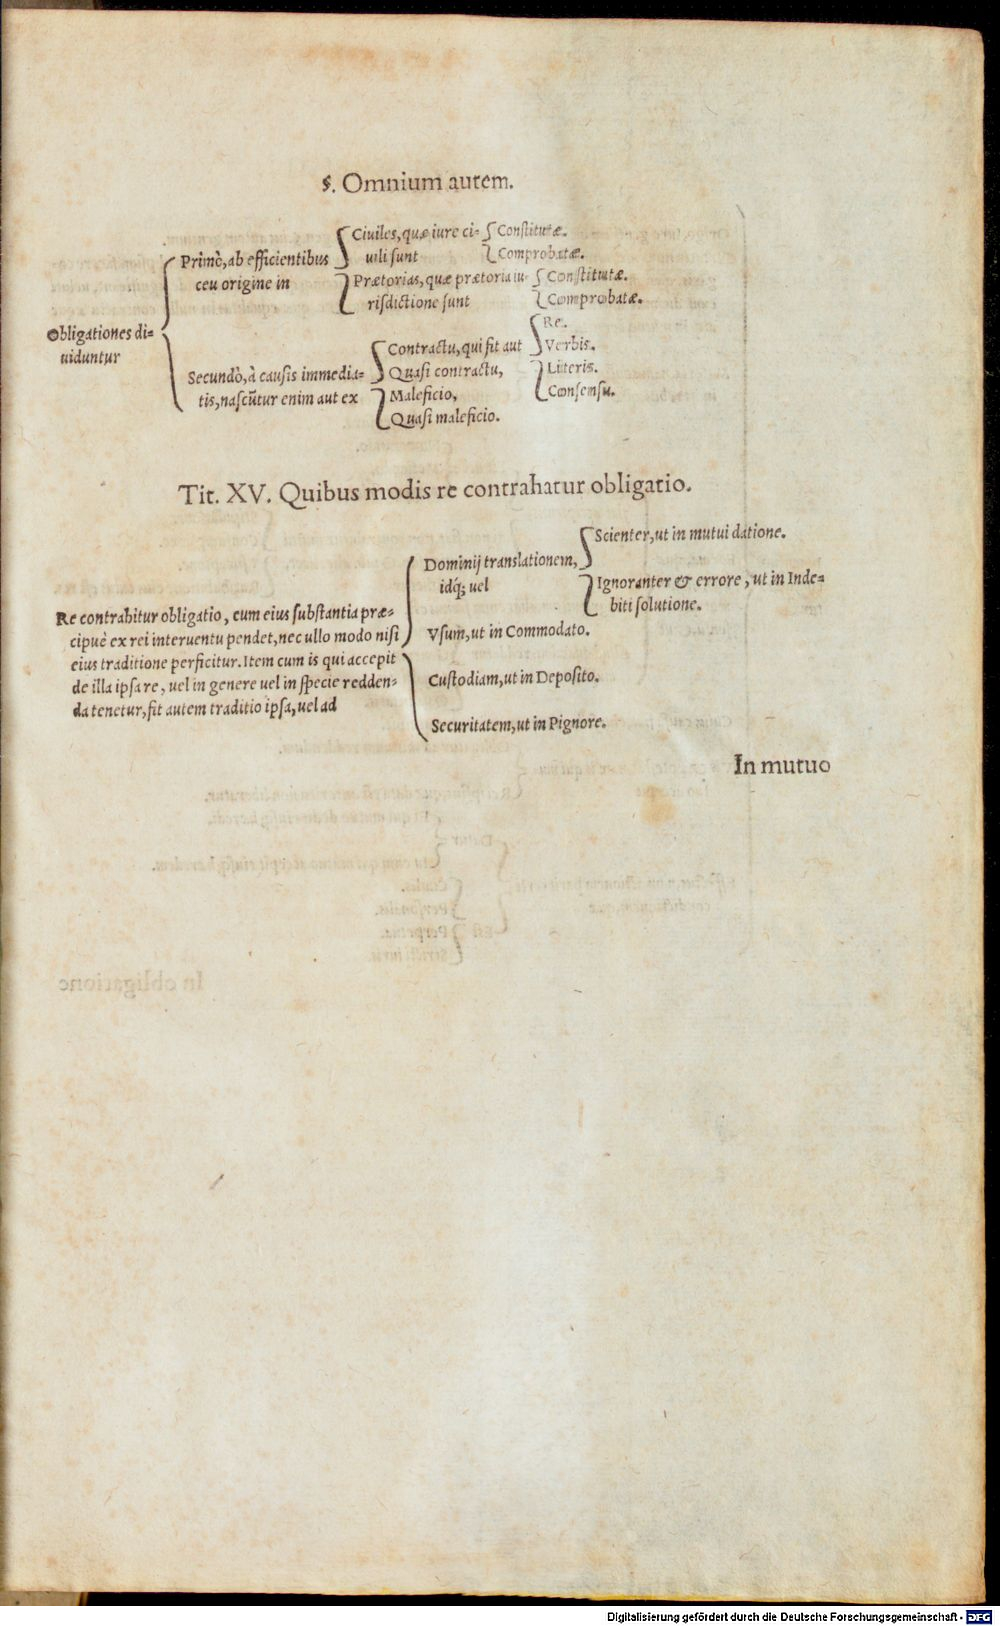 §. Omnium autem.
Obligationes di-
uiduntur
Primò, ab efficientibus
ceu origine in
Ciuiles, quæ iure ci-
uili sunt
Constitutæ.
Comprobatæ.
Prætorias, quæ prætoria iu-
risdictione sunt
Constitutæ.
Comprobatæ.
Secundò, à causis immedia-
tis, nascūtur enim aut ex
Contractu, qui fit aut
Re.
Verbis.
Literis.
Consensu.
Quasi contractu,
Maleficio,
Quasi maleficio.
Tit. XV. Quibus modis re contrahatur obligatio.
Re contrahitur obligatio, cum eius substantia præ-
cipuè ex rei interuentu pendet, nec ullo modo nisi
eius traditione perficitur. Item cum is qui accepit
de illa ipsa re, uel in genere uel in specie redden-
da tenetur, fit autem traditio ipsa, uel ad
Dominij translationem,
idq́; uel
Scienter, ut in mutui datione.
Ignoranter & errore, ut in Inde-
biti solutione.
Vsum, ut in Commodato.
Custodiam, ut in Deposito.
Securitatem, ut in Pignore.
In mutuo
Digitalisierung gefördert durch die Deutsche Forschungsgemeinschaft - DFG